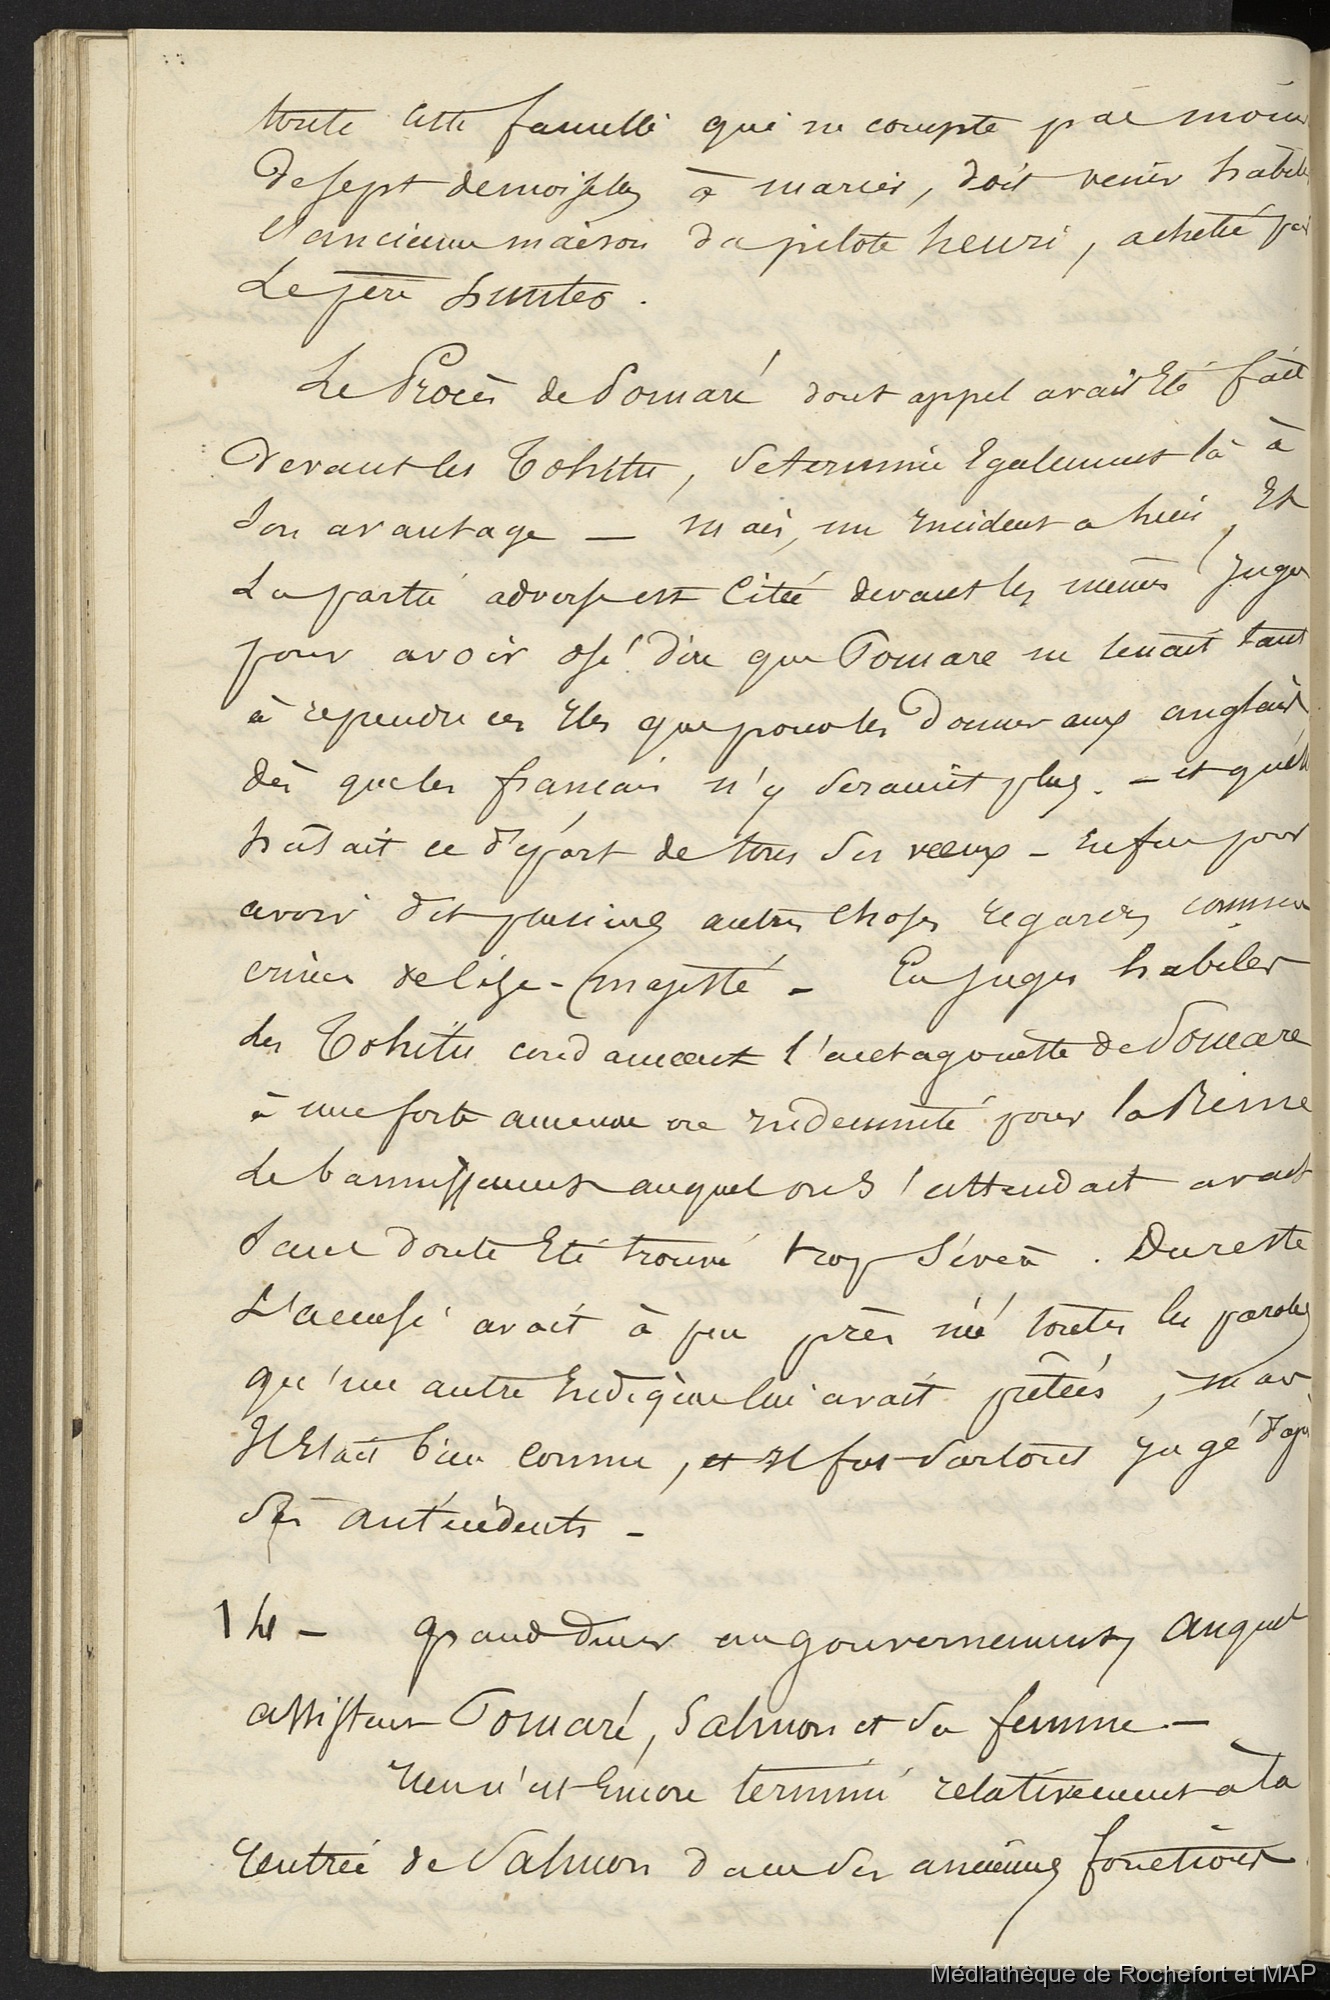 toute cette famille qui ne compte pas moins
de sept demoiselles à marier, doit venir habiter
l'ancienne maison du pilote henri, acheté par
Le père hunter.
Le Procès de Pomaré dont appel avait Eté fait
devant les Tohitu, se termine Egalement là à
son avantage — mais, un incident a lieu, Et
La partie adverse est Citée devant les mêmes Juges
pour avoir osé dire que Pomare ne tenait tant
à reprendre ces Iles que pour les Donner aux anglais
dès que les français n'y seraient plus. — et qu'elle
hâtait ce départ de tous ses vœux — Enfin pour
avoir dit plusieurs autres choses regardées comme
crimes de lèze-majesté — En Juges habiles
Les Tohitu condamnent l'antagoniste de Pomare
à une forte amende ou indemnité pour la Reine
Le bannissement auquel on s'attendait avait
sans doute Eté trouvé trop sévère. Du reste
L'accusé avait à peu près nié toutes les paroles
qu'un autre Indigène lui avait prêtées, mais
Il Etait bien connu, et Il fut surtout jugé d'après
ses antécédents —
14 — Grand diner au gouvernement, auquel
assistent Pomaré, Salmon et sa femme —
Rien n'est Encore terminé relativement à la
rentrée de Salmon dans ses anciennes fonctions
Médiathèque de Rochefort et MAP